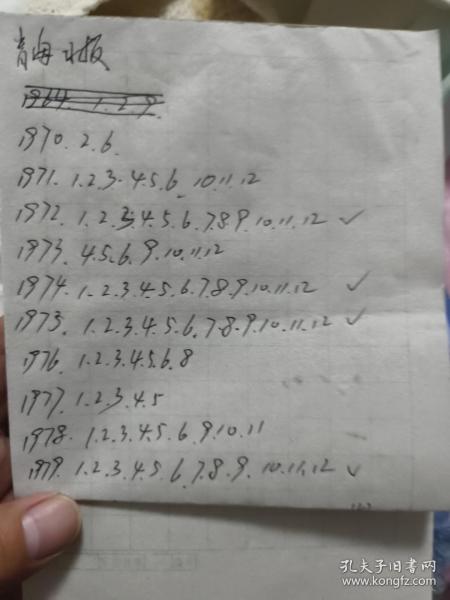 青海日报
1964. 1.2.9.
1970.2.6.
1971.1.2.3.4.5.6.10.11.12
1972.1.2.3.4.5.6.7.8.9.10.11.12 ✓
1973.4.5.6.9.10.11.12
1974.1.2.3.4.5.6.7.8.9.10.11.12 ✓
1975.1.2.3.4.5.6.7.8.9.10.11.12 ✓
1976.1.2.3.4.5.6.8
1977.1.2.3.4.5
1978.1.2.3.4.5.6.9.10.11
1979.1.2.3.4.5.6.7.8.9.10.11.12 ✓
孔夫子旧书网
www.kongfz.com